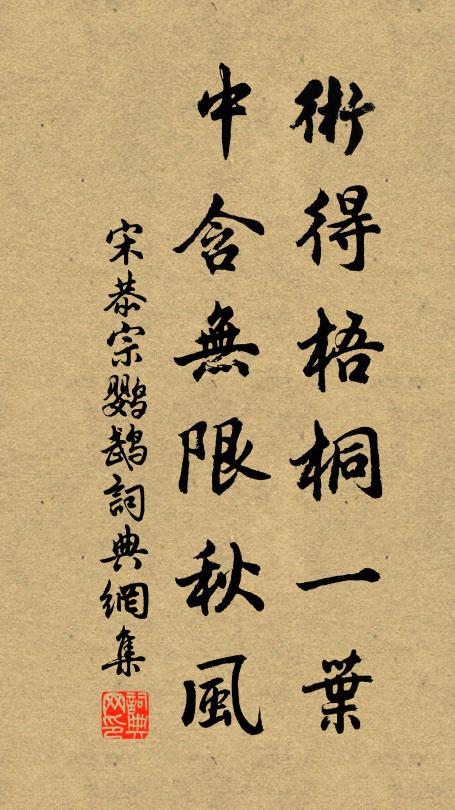 術得梧桐一葉
中含無限秋風
宋恭宗鸚鵡詞典網集
詞典网印